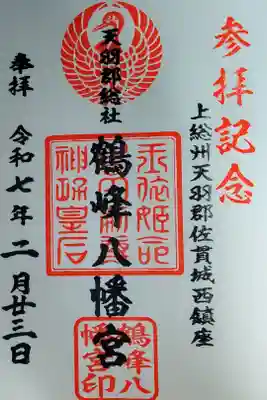 参拝記念
上総州天羽郡佐貫城西鎮座
天羽郡総社
鶴峰八幡宮
玉依姫命
神功皇后
鶴峰八
幡宮印
奉拝
令和七年二月廿三日